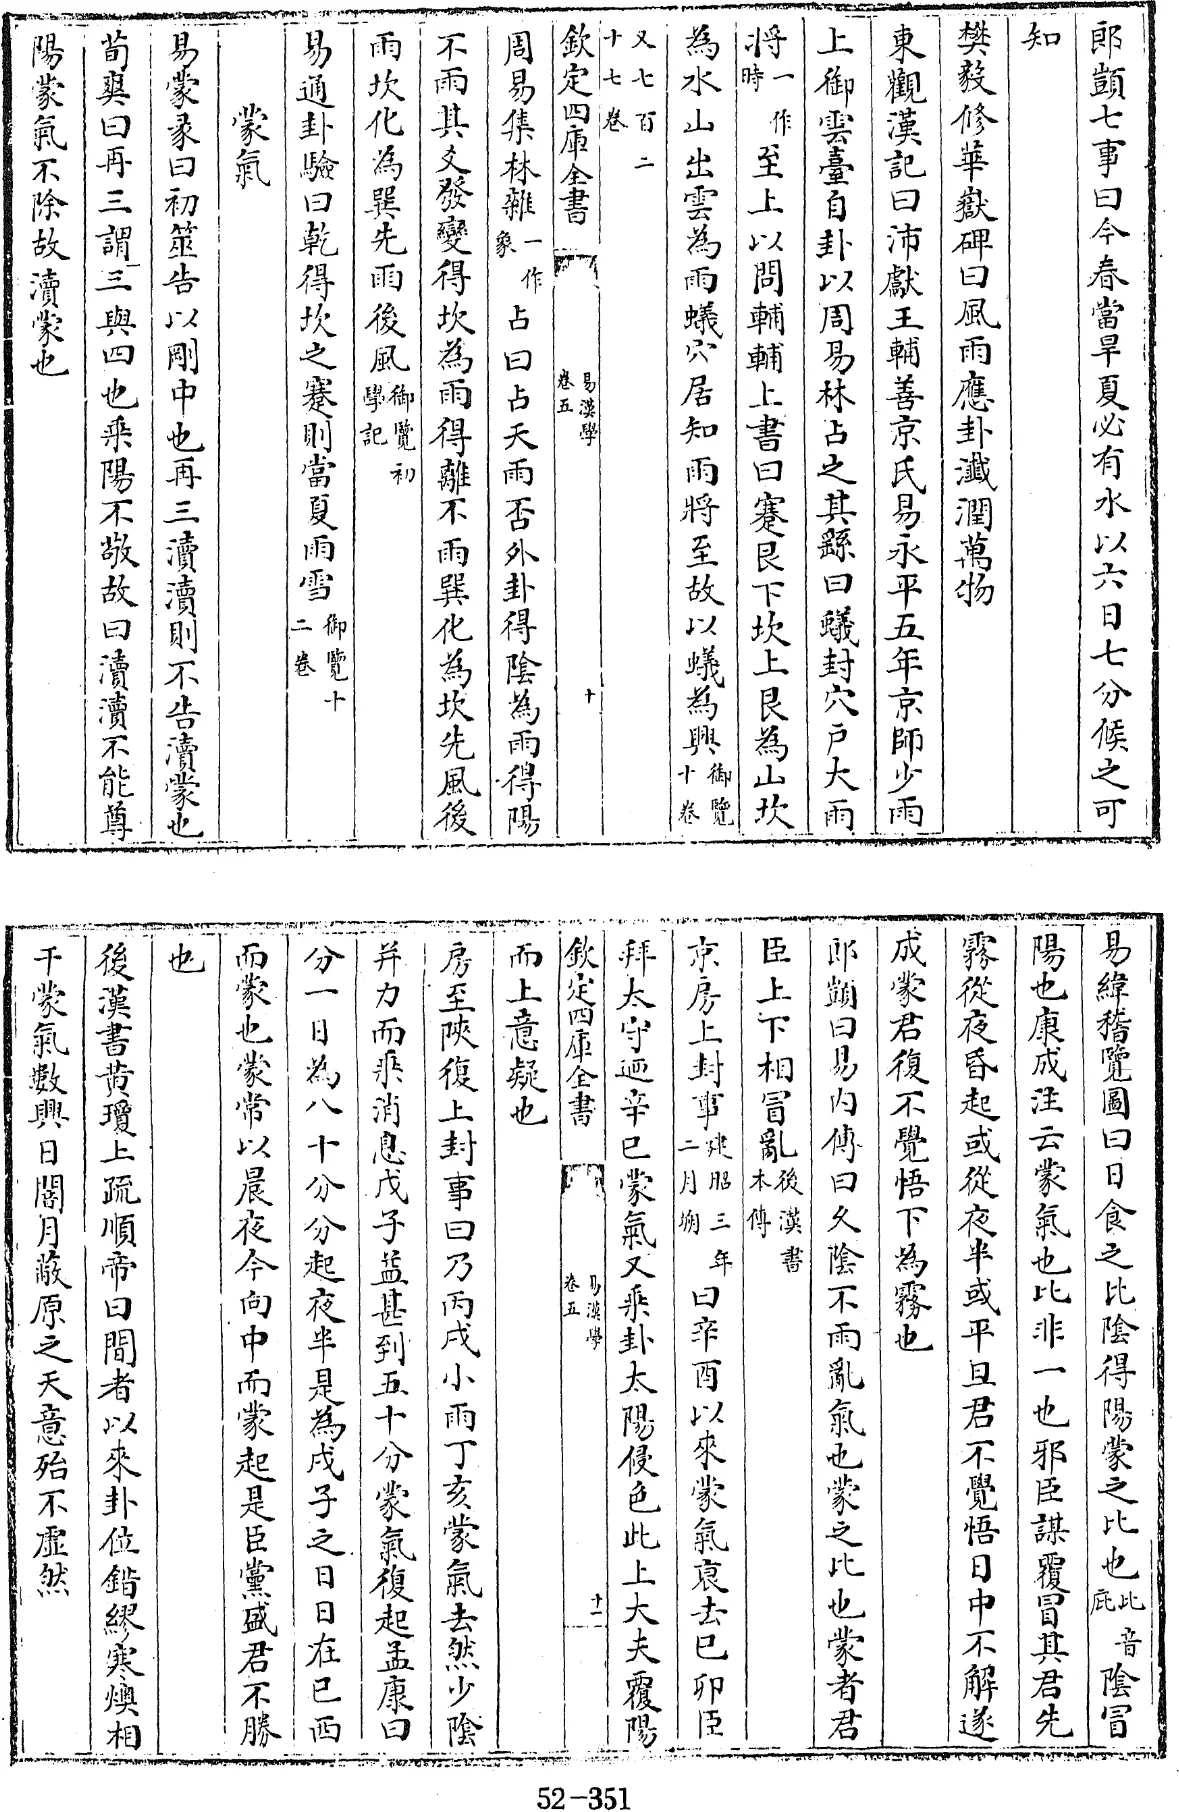 郎顗七事曰今春當旱夏必有水以六日七分候之可
知
樊毅修華嶽碑曰風雨應卦瀸潤萬物
東觀漢記曰沛獻王輔善京氏易永平五年京師少雨
上御雲臺自卦以周易林占之其繇曰蟻封穴戶大雨
將一作時至上以問輔輔上書曰蹇艮下坎上艮為山坎
為水山出雲為雨蟻穴居知雨將至故以蟻為興御覽十卷
又七百二十七卷
欽定四庫全書
易漢學
卷五
十
周易集林雜一作象占曰占天雨否外卦得陰為雨得陽
不雨其爻發變得坎為雨得離不雨巽化為坎先風後
雨坎化為巽先雨後風御覽初學記
易通卦驗曰乾得坎之蹇則當夏雨雪御覽十二卷
蒙氣
易蒙彖曰初筮告以剛中也再三瀆瀆則不告瀆蒙也
荀爽曰再三謂三與四也乘陽不敬故曰瀆瀆不能尊
陽蒙氣不除故瀆蒙也
易緯稽覽圖曰日食之比陰得陽蒙之比也比音庇陰冒
陽也康成注云蒙氣也比非一也邪臣謀覆冒其君先
霧從夜昏起或從夜半或平旦君不覺悟日中不解遂
成蒙君復不覺悟下為霧也
郎顗曰易內傳曰久陰不雨亂氣也蒙之比也蒙者君
臣上下相冒亂後漢書本傳
京房上封事建昭三年二月朔曰辛酉以來蒙氣衰去已卯臣
拜太守迺辛巳蒙氣又乘卦太陽侵色此上大夫覆陽
而上意疑也
欽定四庫全書
易漢學
卷五
十一
房至陝復上封事曰乃丙戌小雨丁亥蒙氣去然少陰
并力而乘消息戊子益甚到五十分蒙氣復起孟康曰
分一日為八十分分起夜半是為戊子之日日在巳西
而蒙也蒙常以晨夜今向中而蒙起是臣黨盛君不勝
也
後漢書黃瓊上疏順帝曰間者以來卦位錯繆寒燠相
干蒙氣數興日闇月蔽原之天意殆不虛然
52-351